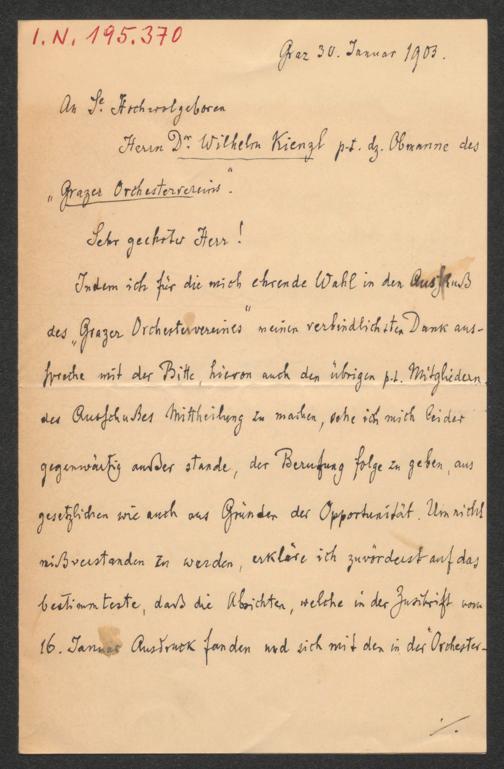 I.N. 195.370
Graz 30. Januar 1903.
An Se. Hochwolgeboren
Herrn Dr. Wilhelm Kienzl p.t. dz. Obmanne des
„Grazer Orchestervereins“.
Sehr geehrter Herr!
Indem ich für die mich ehrende Wahl in den Ausschuß
des „Grazer Orchestervereines“ meinen verbindlichsten Dank aus-
spreche mit der Bitte, hievon auch den übrigen p.t. Mitgliedern
des Ausschußes Mittheilung zu machen, sehe ich mich leider
gegenwärtig außer stande, der Berufung folge zu geben, aus
gesetzlichen wie auch aus Gründen der Opportunität. Um nicht
mißverstanden zu werden, erkläre ich zuvörderst auf das
bestimmteste, daß die Absichten, welche in der Zuschrift vom
16. Januar Ausdruck fanden und sich mit den in der „Orchester-
./.